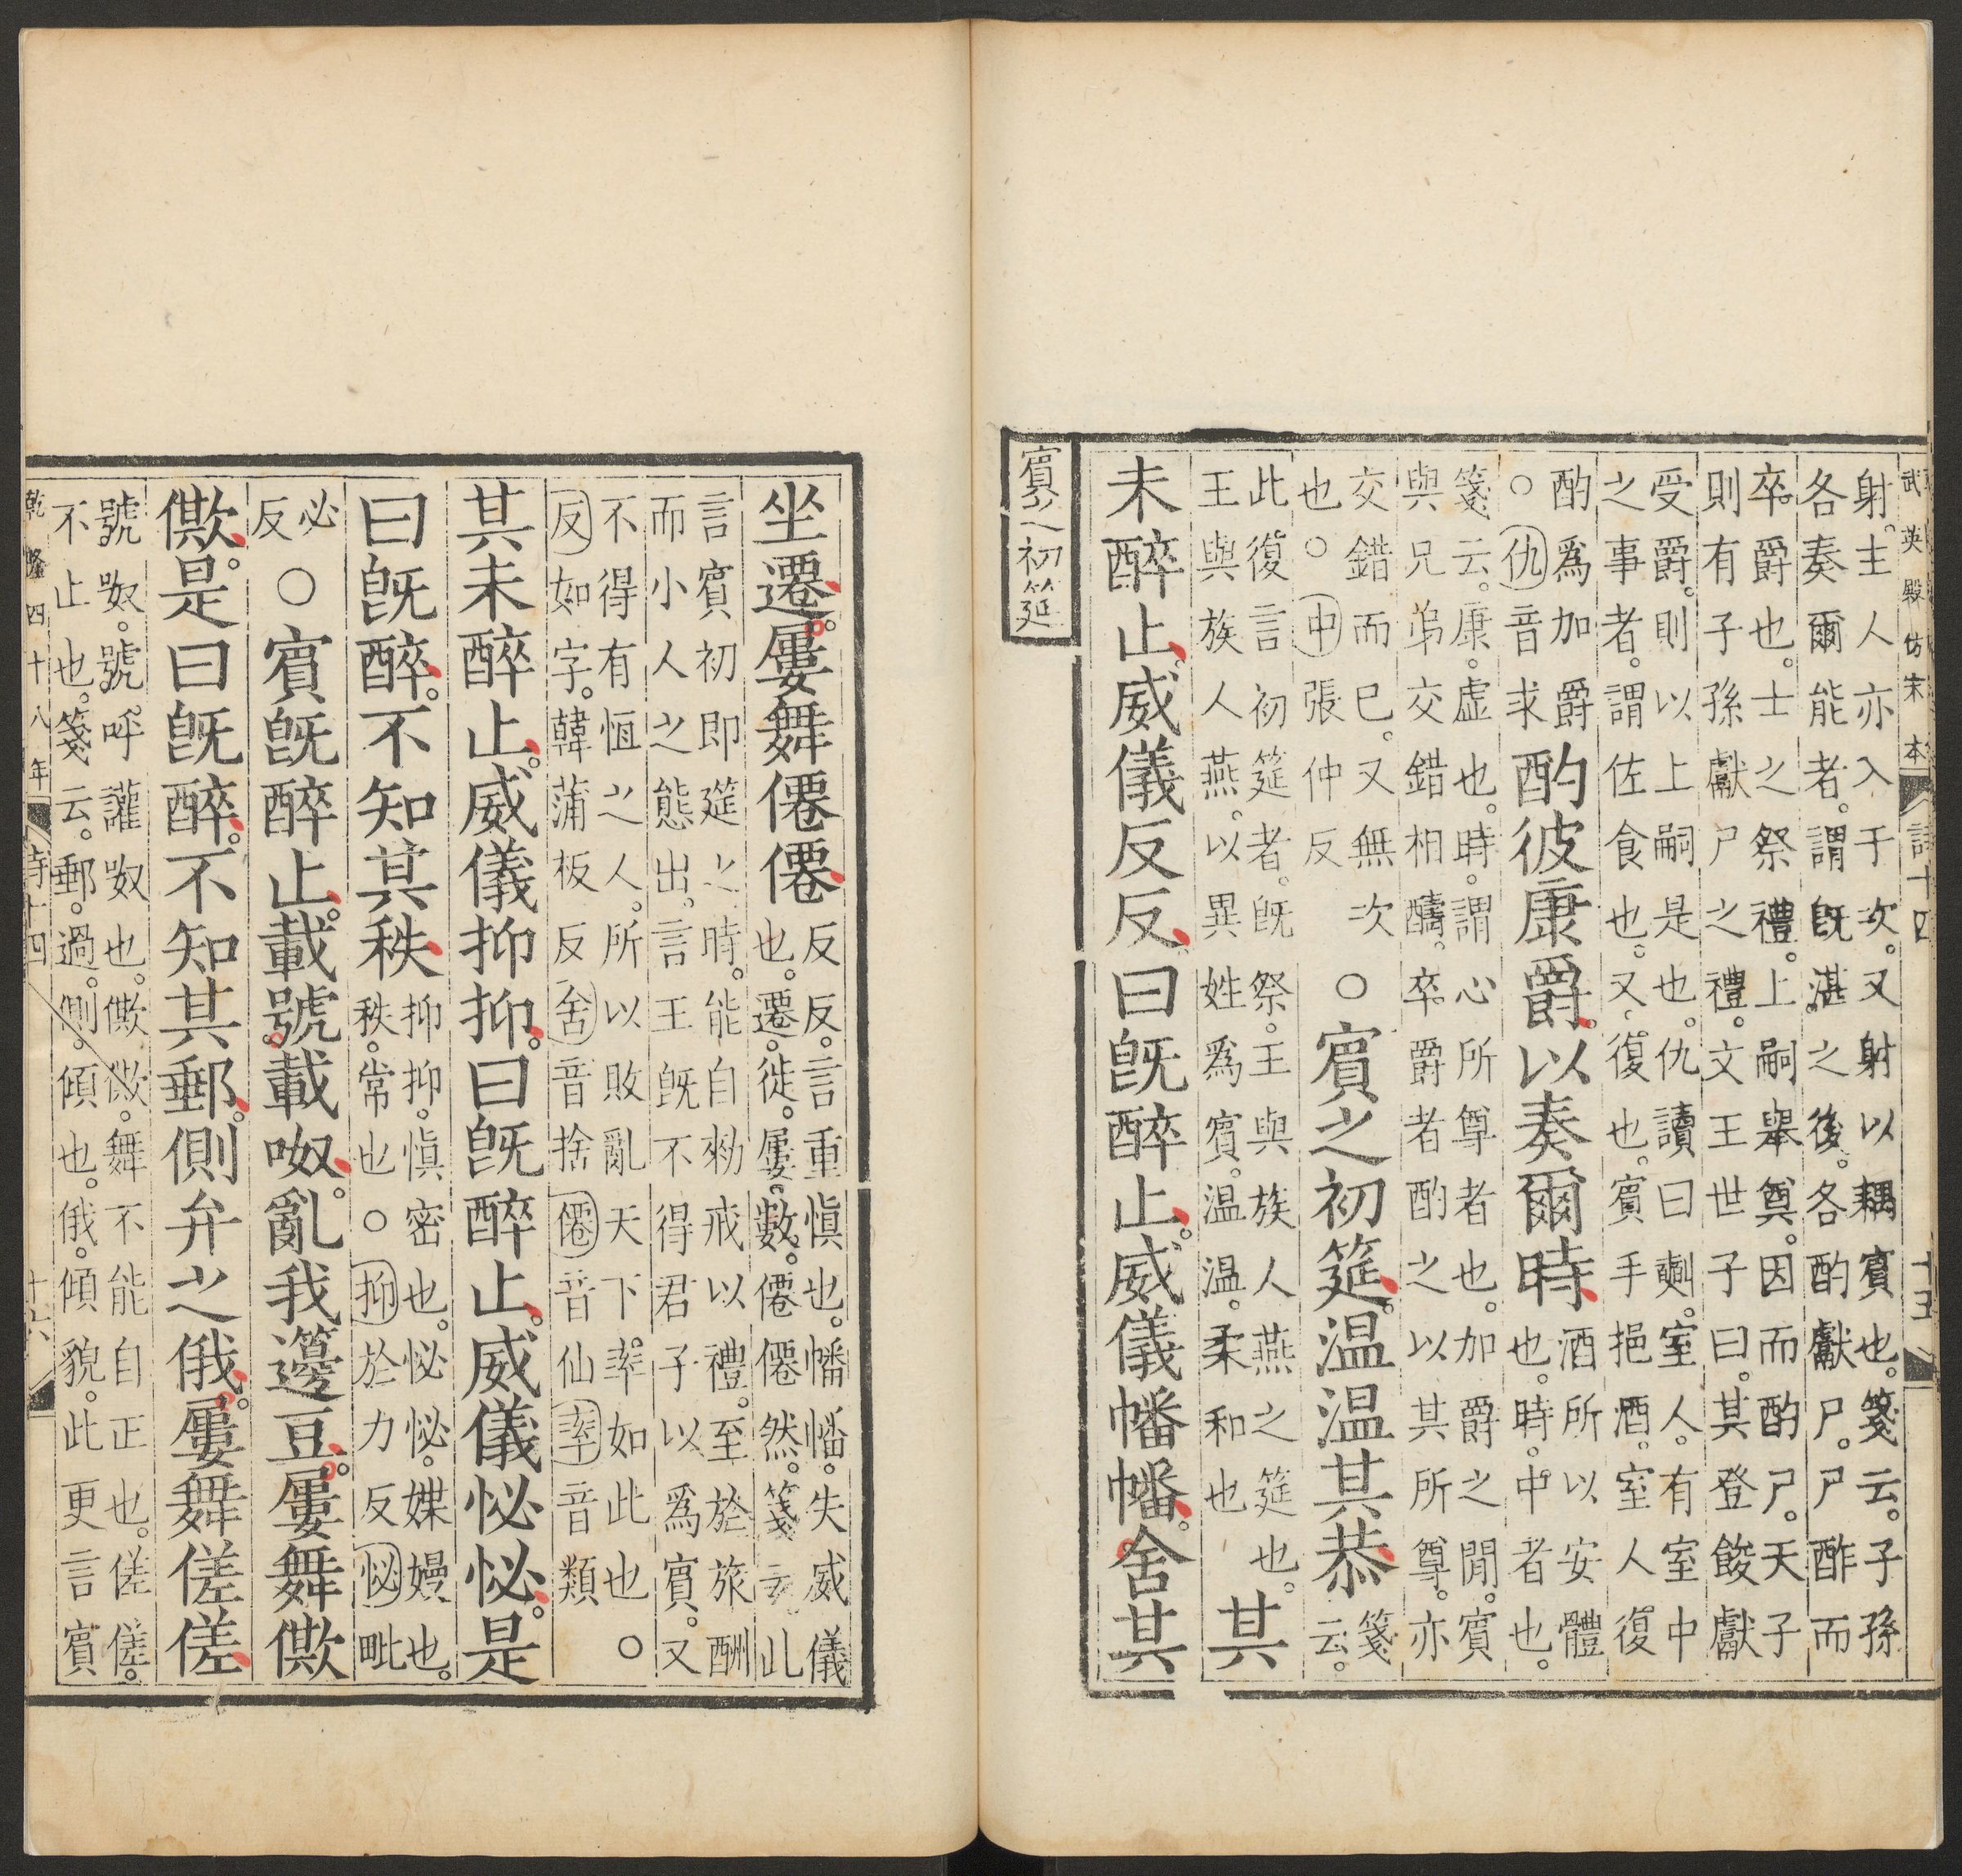 武英殿仿宋本 詩十四 十五
射。主人亦入于次。又射以耦賓也。箋云。子孫
各奏爾能者。謂旣湛之後。各酌獻尸。尸酢而
卒爵也。士之祭禮。上嗣舉奠。因而酌尸。天子
則有子孫獻尸之禮。文王世子曰。其登餕獻
受爵。則以上嗣是也。仇讀曰㪺。室人。有室中
之事者。謂佐食也。又。復也。賓手挹酒。室人復
酌爲加爵
○仇音求
酌彼康爵。以奏爾時。
酒所以安體
也。時。中者也。
箋云。康。虛也。時。謂心所尊者也。加爵之閒。賓
與兄弟交錯相醻。卒爵者酌之以其所尊。亦
交錯而巳。又無次
也○中張仲反
○賓之初筵。温温其恭。
箋
云。
此復言初筵者。旣祭。王與族人燕之筵也。
王與族人燕。以異姓爲賓。温温。柔和也
其
未醉止。威儀反反。曰旣醉止。威儀幡幡。舍其
賓之初筵
坐遷。屢舞僊僊。
反反。言重愼也。幡幡。失威儀
也。遷。徙。屢。數。僊僊然。箋云此
言賓初卽筵之時。能自勑戒以禮。至於旅酬
而小人之態出。言王旣不得君子以爲賓。又
不得有恆之人。所以敗亂天下。率如此也○
反如字。韓蒲板反舍音捨僊音仙率音類
其未醉止。威儀抑抑。曰旣醉止。威儀怭怭。是
曰旣醉。不知其秩。
抑抑。愼密也。怭怭。媟嫚也。
秩。常也○抑於力反怭毗
必
反
○賓旣醉止。載號載呶。亂我籩豆。屢舞僛
僛。是曰旣醉。不知其郵。側弁之俄。屢舞傞傞。
號呶。號呼讙呶也。僛僛。舞不能自正也。傞傞。
不止也。箋云。郵。過。側。傾也。俄。傾貌。此更言賓
乾隆四十八年 詩十四 十六